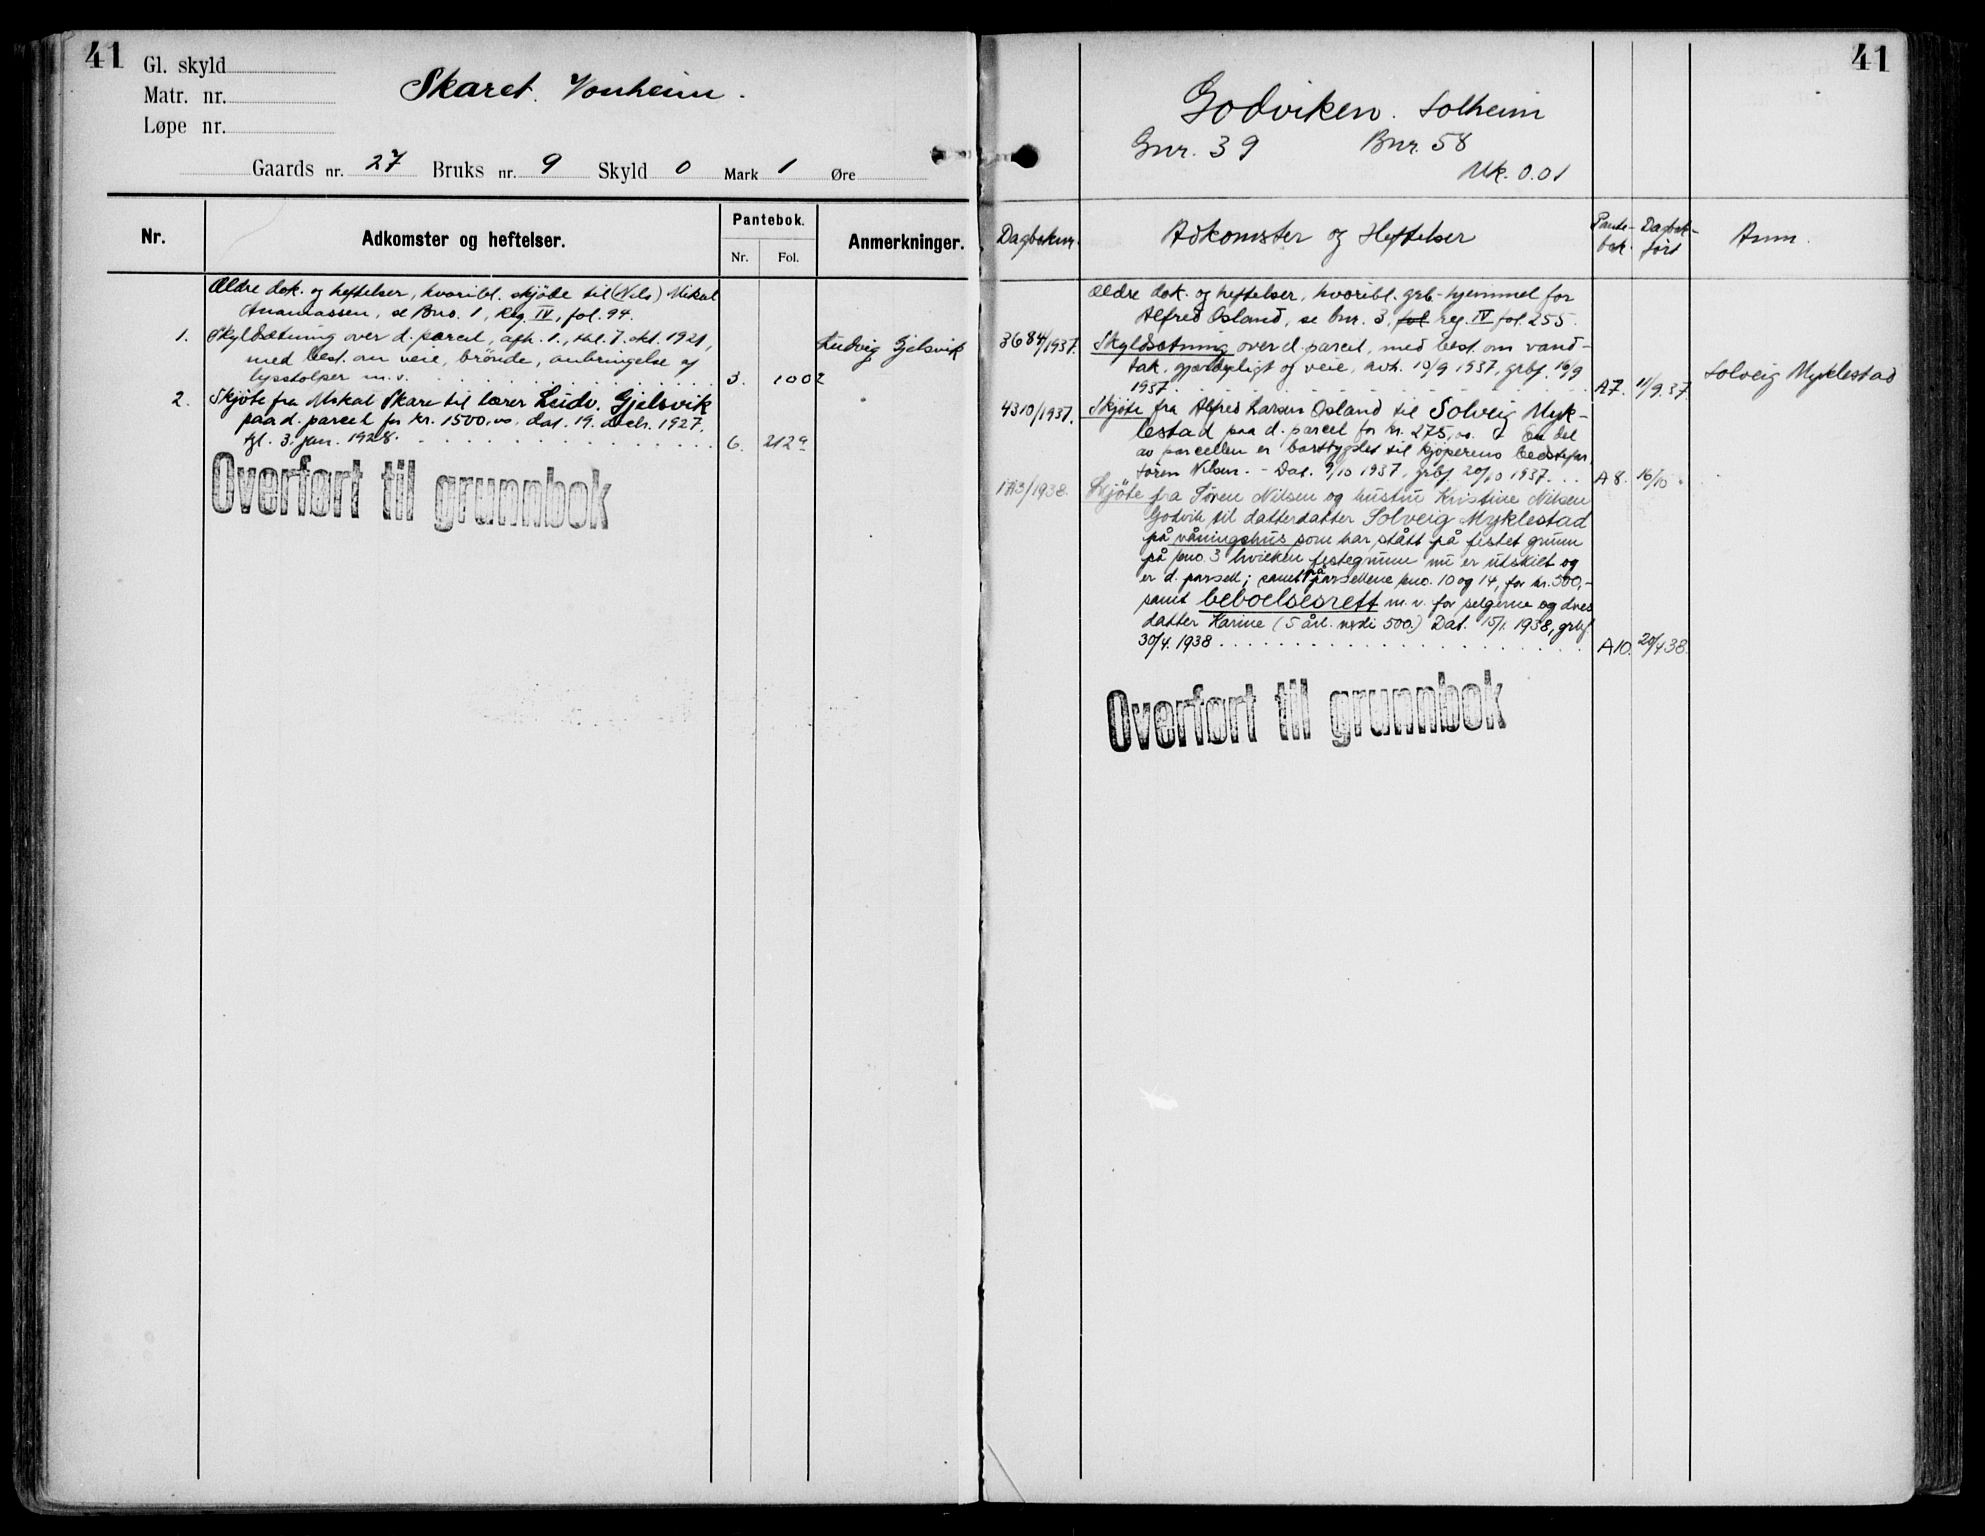 41
Gl. skyld
Matr. nr.
Løpe nr.
Skaret. Vonheim.
Gaards nr. 27 Bruks nr. 9 Skyld 0 Mark 1 Øre
Nr.
Adkomster og heftelser.
Pantebok.
Nr. Fol.
Anmerkninger.
Ældre dok. og heftelser, hvoribl. skjøde til (Nils) Mikal
Ananiassen, se Bno. 1, Reg. IV, fol. 94.
1. Skyldsætning over d. parcel, afh. 1., tgl. 7. okt. 1921,
med best. om veie, brønde, anbringelse af
lysstolper m. v. 3. 1002
Ludvig Gjelsvik
2. Skjøte fra Mikal Skare til lærer Ludv. Gjelsvik
paa d. parcel for kr. 1500,00, dat. 19. decbr. 1927,
tgl. 3. jan. 1928. 6. 212a
Overført til grunnbok
41
Godviken. Solheim
Gnr. 39 Bnr. 58
Mk. 0.01
Dagboknr.
Adkomster og Heftelser
Pante-
bok.
Dagbok-
ført
Anm.
Ældre dok. og heftelser, hvoribl. grb-hjemmel for
Alfred Osland, se bnr. 3, fol. reg. IV fol. 255.
3684/1937. Skyldsætning over d. parcel, med best. om vand-
tak, gjærdepligt og veie, avh. 10/9 1937, grbf. 16/9
1937 A7. 11/9.37.
Solveig Myklestad
4310/1937. Skjøte fra Alfred Larsen Osland til Solveig Myk-
lestad paa d. parcel for kr. 275,00. En del
av parcellen er bortbygslet til kjøperens bedstefar,
Søren Nilsen. - Dat. 9/10 1937, grbf. 20/10 1937. A8. 16/10
/1938. Skjøte fra Søren Nilsen og hustru Kristine Nilsen
Godvik til datterdatter Solveig Myklestad
på våningshus som har stått på festet grunn
på bno. 3 hvilken festegrunn nu er utskilt og
er d. parsell; samt på parsellene bno. 10 og 14, for kr. 500,-
samt beboelsesrett m. v. for selgerne og dres
datter Karine (5 årl. verdi 500.) Dat. 15/1. 1938, grbf.
30/4. 1938 A10. 20/4 38.
Overført til grunnbok